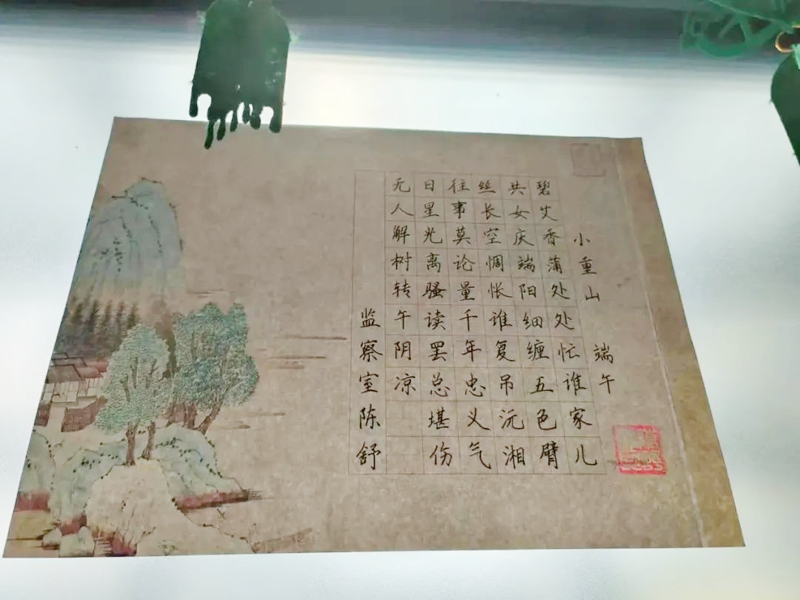 小重山 端午
碧艾香蒲处处忙谁家儿
共女庆端阳细缠五色臂
丝长空惆怅谁复吊沅湘
往事莫论量千年忠义气
日星光离骚读罢总堪伤
无人解树转午阴凉
监察室陈舒